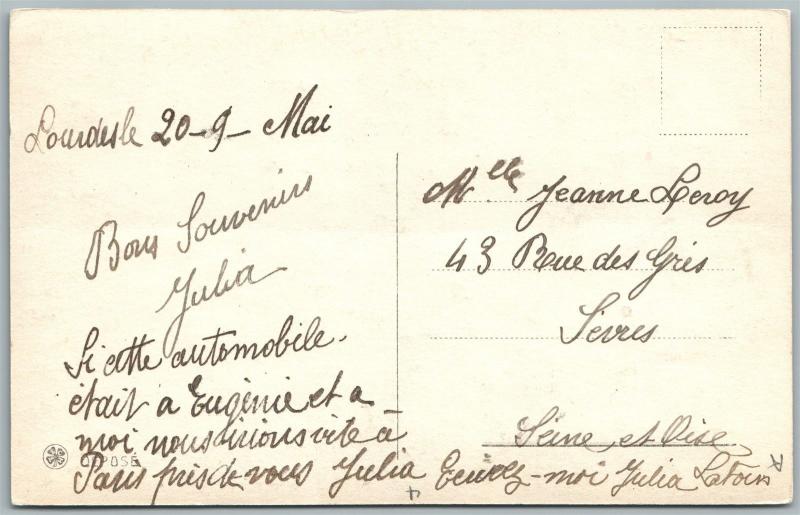 Lourdes le 20-9- Mai
Bons Souvenirs
Julia
Si cette automobile
était a Eugénie et a
moi nous irions vite à
Paris près de vous Julia Ecrivez-moi Julia
DEPOSE
Mlle Jeanne Leroy
43 Rue des Grés
Sèvres
Seine et Oise